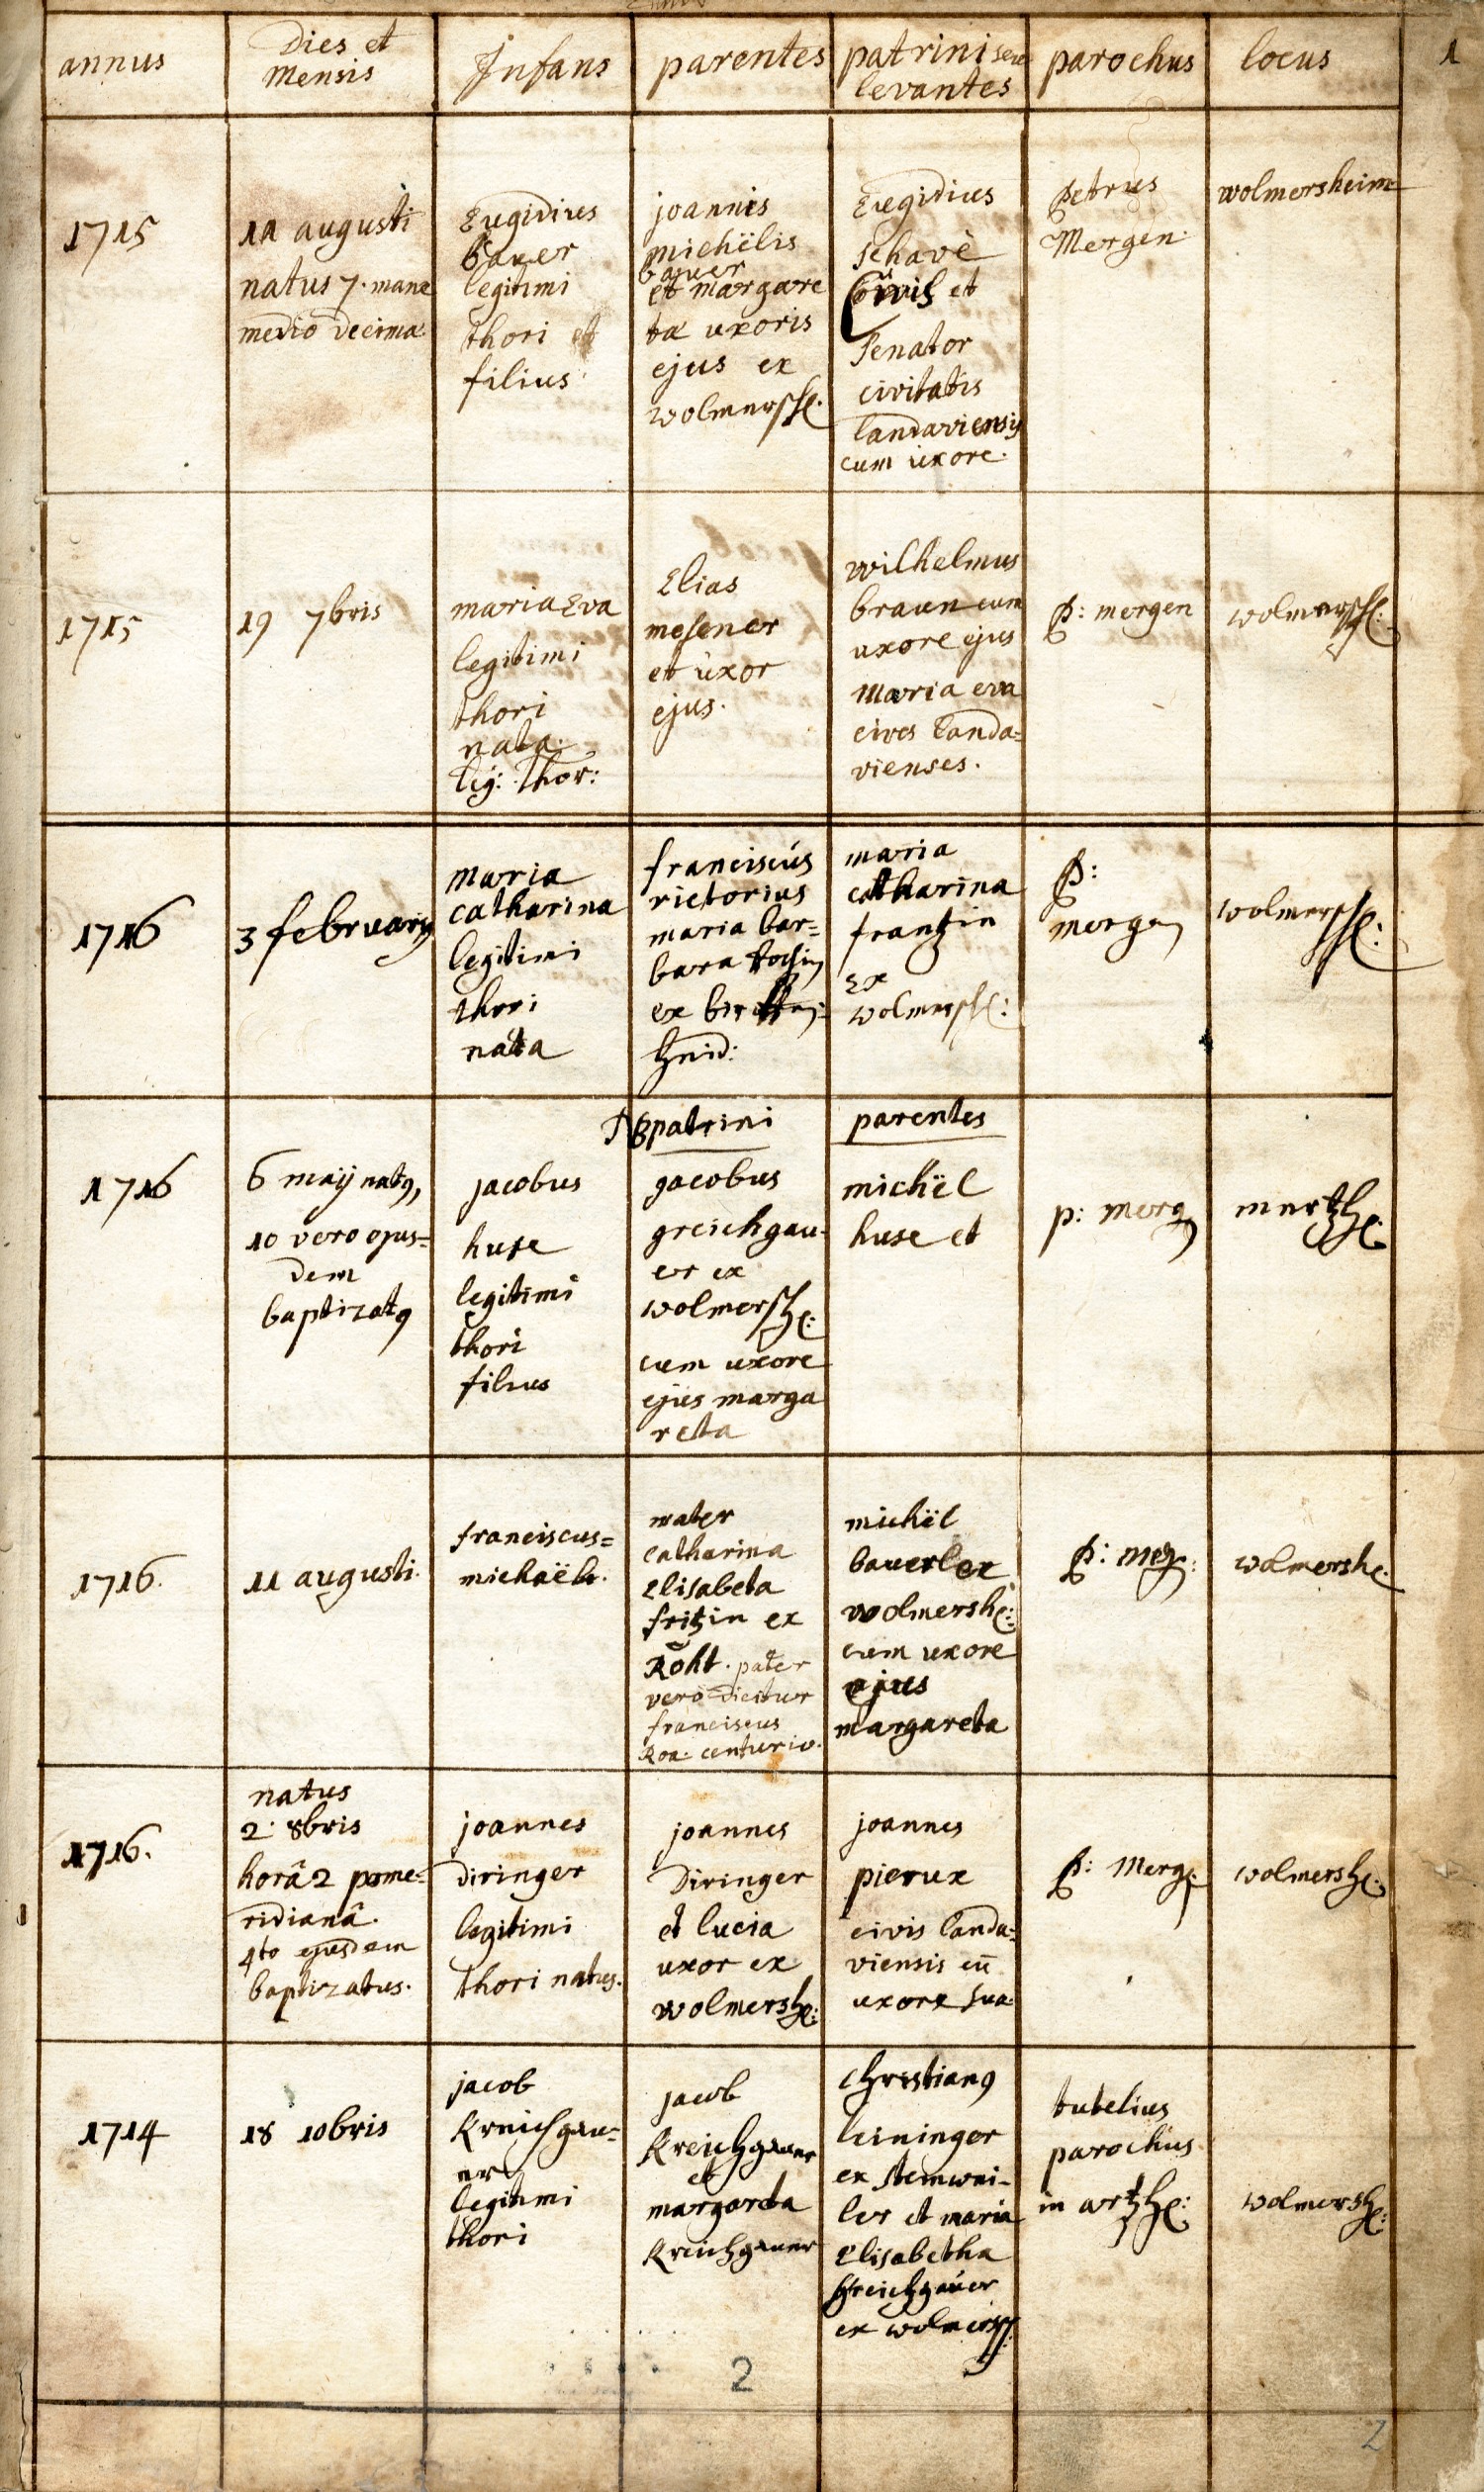 annus
Dies et
Mensis
Infans
parentes
patrini seu
levantes
parochus
locus
1
1715
11 augusti
natus 7. mane
medio decima
Eugidius
bauer
legitimi
thori et
filius
joannis
michëlis
bauer
et margare
ta uxoris
ejus ex
wolmersh:
Eugidius
schavè
Civis et
Senator
civitatis
landaviensis
cum uxore.
Petrus
Mergen
wolmersheim
1715
19 7bris
maria Eva
legitimi
thori
nata.
leg: thor:
Elias
mesener
et uxor
ejus.
wilhelmus
braun cum
uxore ejus
Maria eva
cives landa=
vienses.
P: mergen
wolmersh:
1716
3 february
Maria
catharina
legitimi
thori
nata
franciscus
rictorius
maria bar=
bara
ex
maria
catharina
frantzin
Ex
wolmersh:
P:
mergen
wolmersh:
NB patrini
parentes
1716
6 maÿ nat9,
10 vero ejus=
dem
baptizat9
jacobus
huse
legitimi
thori
filius
jacobus
greichgau-
er ex
wolmersh:
cum uxore
ejus marga
reta
michël
huse et
p: merg
mertzh:
1716.
11 augusti.
franciscus=
michaël.
mater
catharina
Elisabeta
fritzin ex
Roht. pater
vero dicitur
franciscus
Roa. centurio.
michël
bauer ex
wolmersh:
cum uxore
ejus
margareta
P: merg:
wolmersh:
1716.
natus
2. 8bris
horâ 2 pome=
ridianâ.
4to ejusdem
baptizatus.
joannes
Diringer
legitimi
thori natus.
joannes
Diringer
et lucia
uxor ex
wolmersh:
joannes
pierux
civis landa=
viensis cu̅
uxore sua.
P: Merg:
wolmersh:
1714
18 10bris
jacob
Kreichgau=
er
legitimi
thori
jacob
Kreichgauer
et
margareta
Kreichgauer
christian9
leininger
ex steinwei-
ler et maria
Elisabetha
Kreichgauer
ex wolmersh:
tutelius
parochus
in artzh:
wolmersh:
2
2